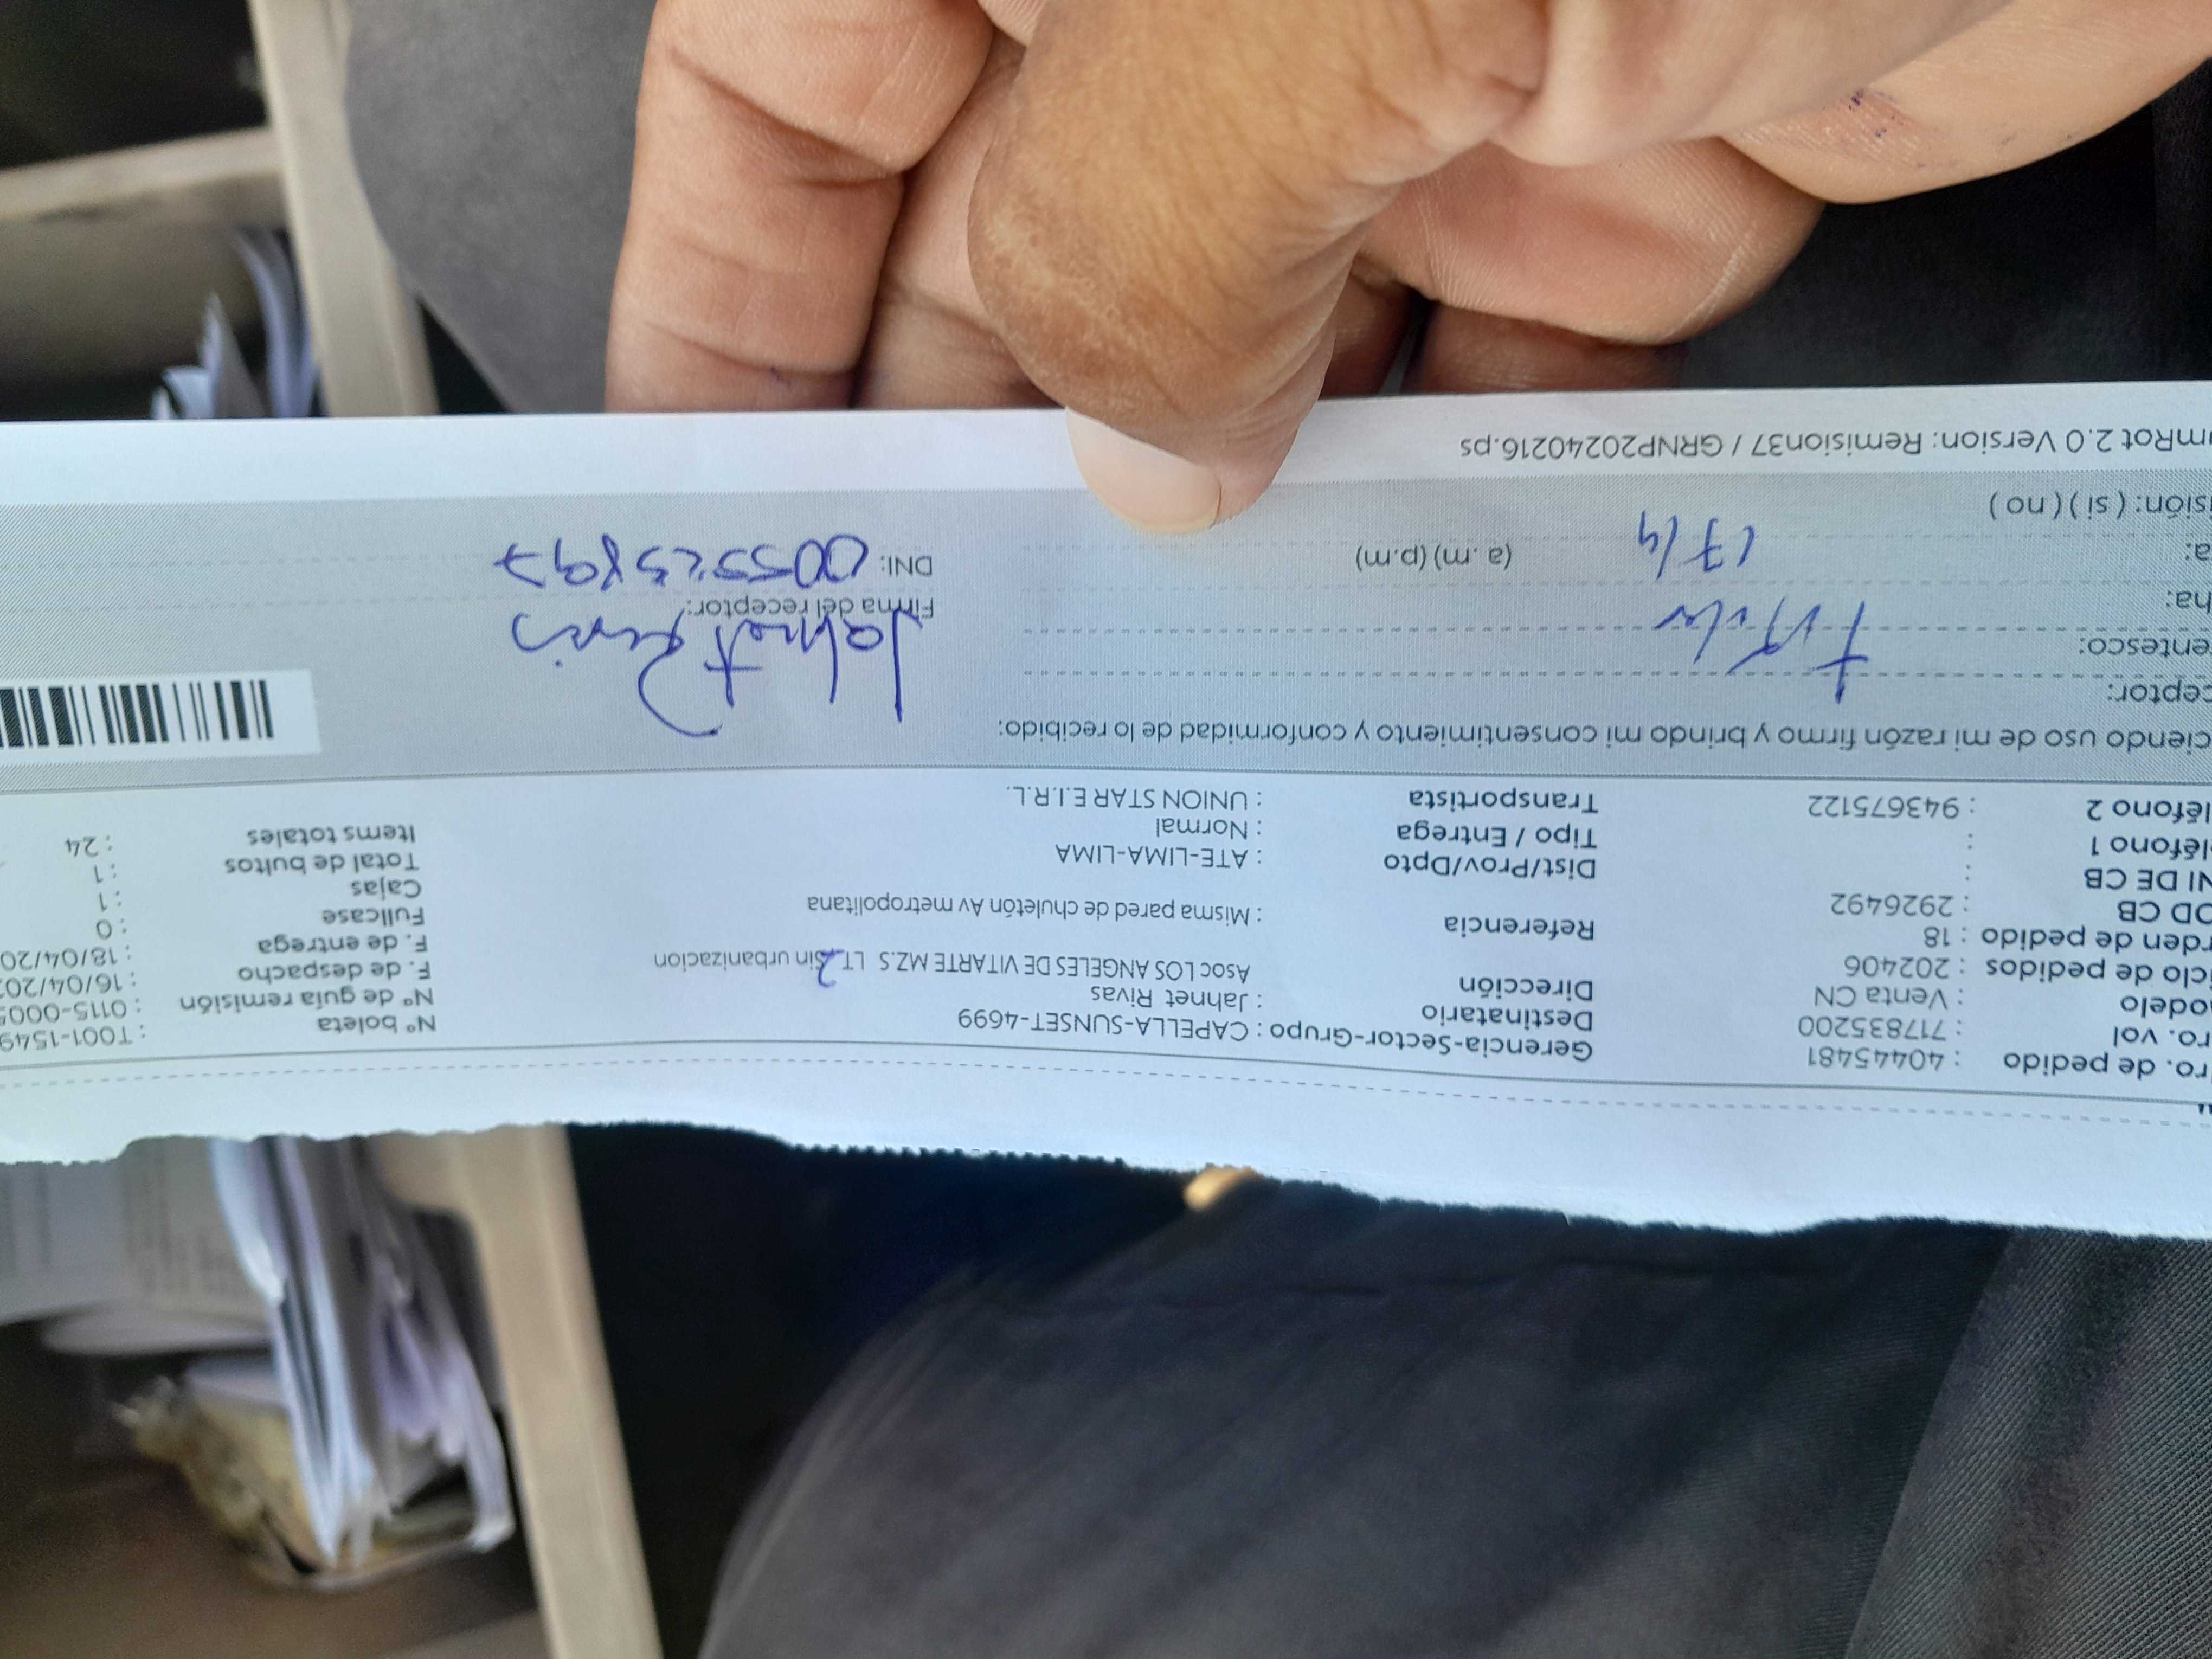 ro. de pedido : 40445481
ro. vol : 717835200
odelo : Venta CN
iclo de pedidos : 202406
rden de pedido : 18
OD CB : 2926492
NI DE CB :
léfono 1 :
léfono 2 : 943675122
Gerencia-Sector-Grupo : CAPELLA-SUNSET-4699
Destinatario : Jahnet Rivas
Dirección Asoc LOS ANGELES DE VITARTE MZ.S LT. 2 Sin urbanizacion
Referencia : Misma pared de chuletón Av metropolitana
Dist/Prov/Dpto : ATE-LIMA-LIMA
Tipo / Entrega : Normal
Transportista : UNION STAR E.I.R.L.
Nº boleta : T001-1549
Nº de guía remisión : 0115-000
F. de despacho : 16/04/202
F. de entrega : 18/04/20
Fullcase : 0
Cajas : 1
Total de bultos : 1
Items totales : 24
ciendo uso de mi razón firmo y brindo mi consentimiento y conformidad de lo recibido:
ceptor:
entesco: Titular
ha:
a: 17/4 (a. m) (p.m)
isión: ( si ) ( no )
Jahnet Rivas
Firma del receptor:
DNI: 005523897
mRot 2.0 Version: Remision37 / GRNP20240216.ps